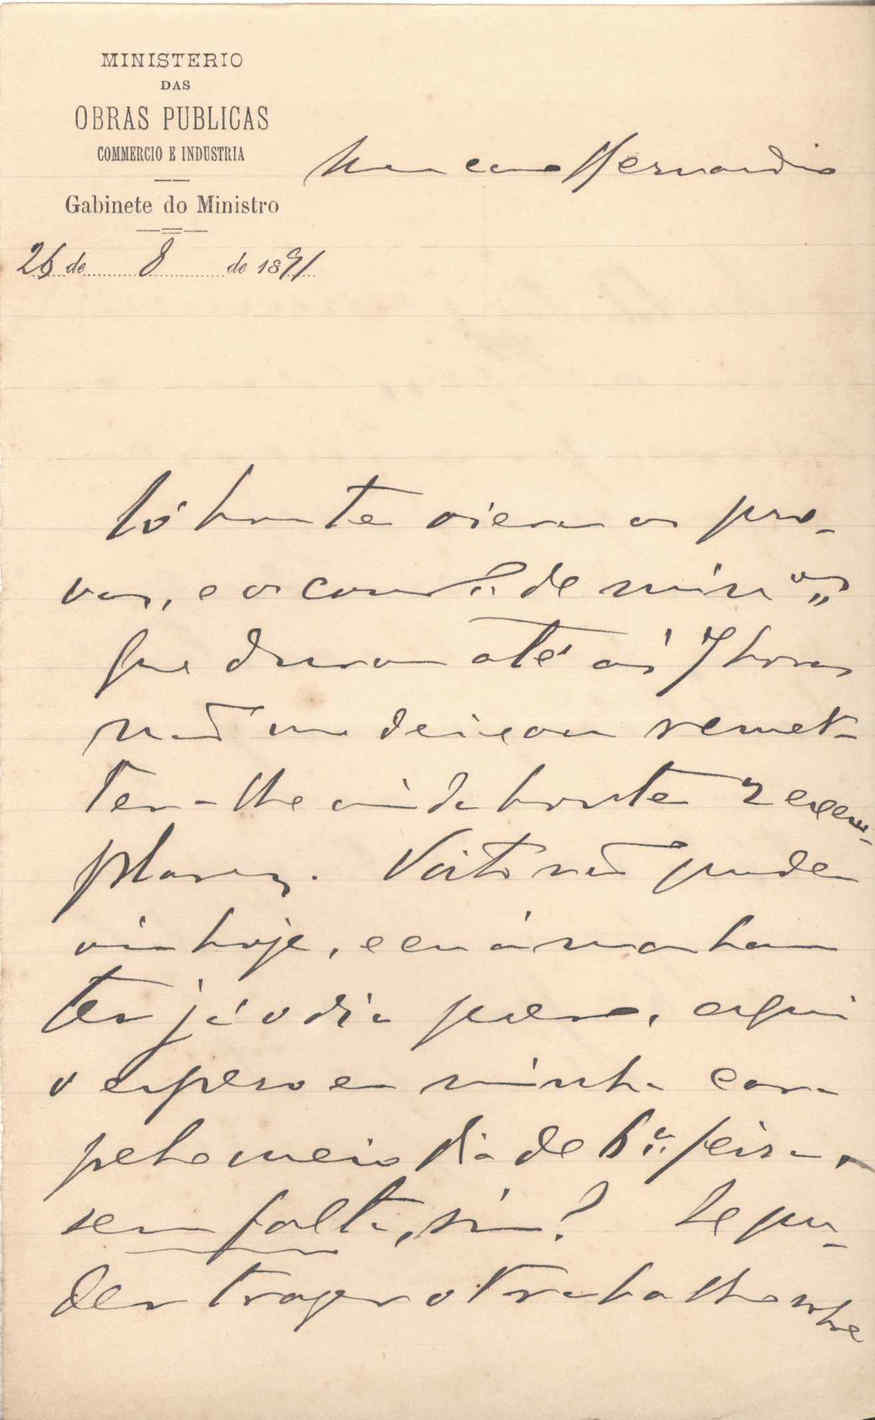 MINISTERIO
DAS
OBRAS PUBLICAS
COMMERCIO E INDUSTRIA
Gabinete do Ministro
26 de 8 de 1891
Meu caro Bernardino
Só honte vieram as pro-
vas, e o cons.º de min.os,
que durou até ás 7 horas
não me deixou remet-
ter-lhe ainda honte 2 exem-
plares. Visto não puder
vir hoje, e eu ámanhan
ter já o dia preso, aqui
o espero em minha casa
pelo meio dia de 6.a feira,
sem falta, sim? Se pu-
der traser o trabalho sobre